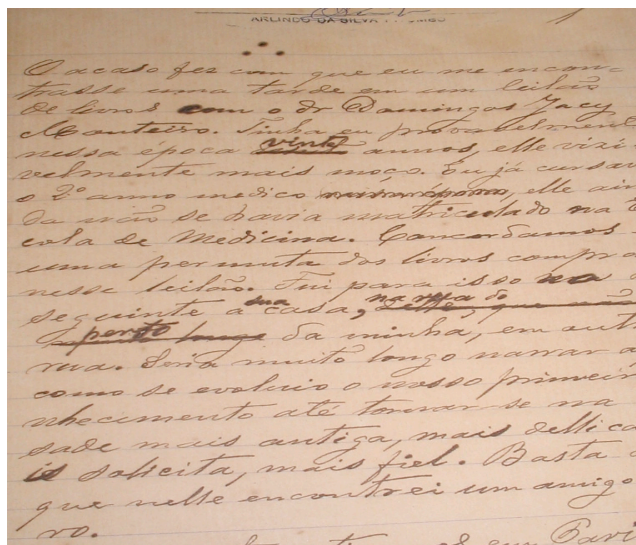 ARLINDO DA SILVA
O acaso fez com que eu me encon-
trasse uma tarde em um leilão
de livros com o dr Domingos Jacy
Monteiro. Tinha eu provavelment
nessa época vinte annos, elle visi
velmente mais moço. Eu já cursav
o 2º anno medico, elle ain
da não se havia matriculado na
cola de Medicina. Concordamos
uma permuta dos livros compra
nesse leilão. Fui para isso no
seguinte a sua casa, na rua do
perto da minha, em out
rua. Seria muito longo narrar
como se evoluio o nosso primeir
nhecimento até tornar-se na
sade mais antiga, mais dellica
is solicita, mais fiel. Basta
que nelle encontrei um amigo
ro.